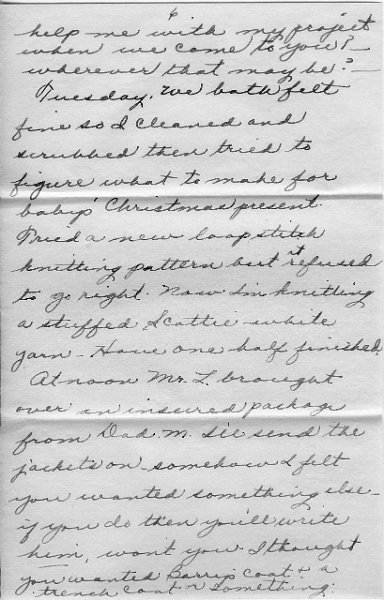 6
help me with my project
when we come to you? —
wherever that may be? —
Tuesday. We both felt
fine so I cleaned and
scrubbed then tried to
figure what to make for
baby's Christmas present.
Tried a new loop stitch
knitting pattern but it refused
to go right. Now I'm knitting
a stuffed Scottie - white
yarn - Have one half finished.
At noon Mr. L. brought
over an insured package
from Dad M. I'll send the
jackets on. somehow I felt
you wanted something else -
if you do then you'll write
him, won't you. I thought
you wanted coat & a
trench coat or something.